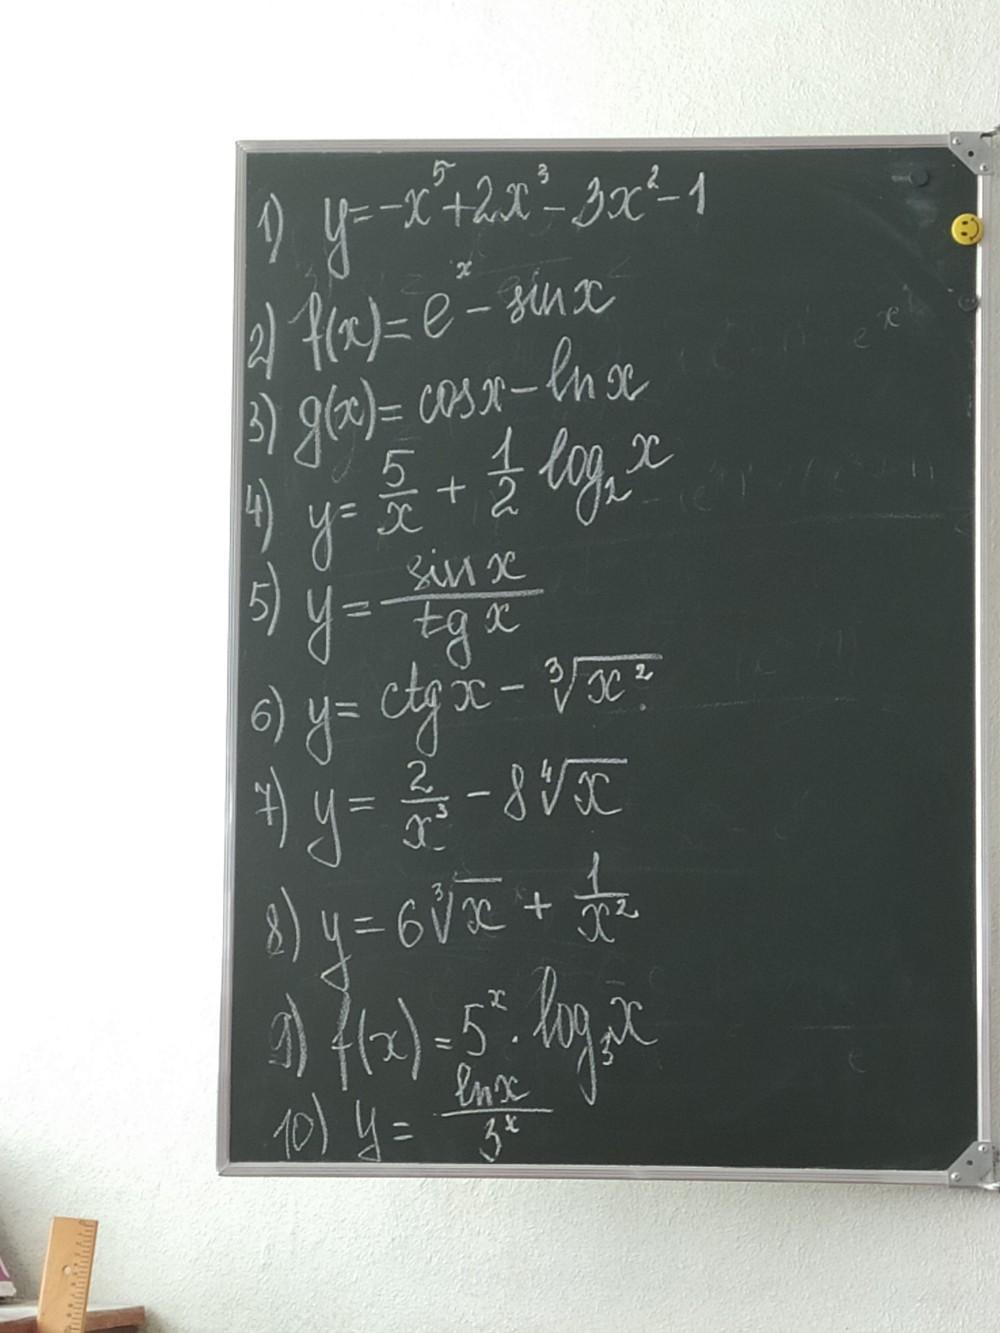 1) y = -x⁵ + 2x³ - 3x² - 1
2) f(x) = eˣ - sin x
3) g(x) = cos x - ln x
4) y = 5/x + 1/2 log₂ x
5) y = sin x / tg x
6) y = ctg x - ³√x²
7) y = 2/x³ - 8 ⁴√x
8) y = 6 ³√x + 1/x²
9) f(x) = 5ˣ · log₃ x
10) y = ln x / 3ˣ